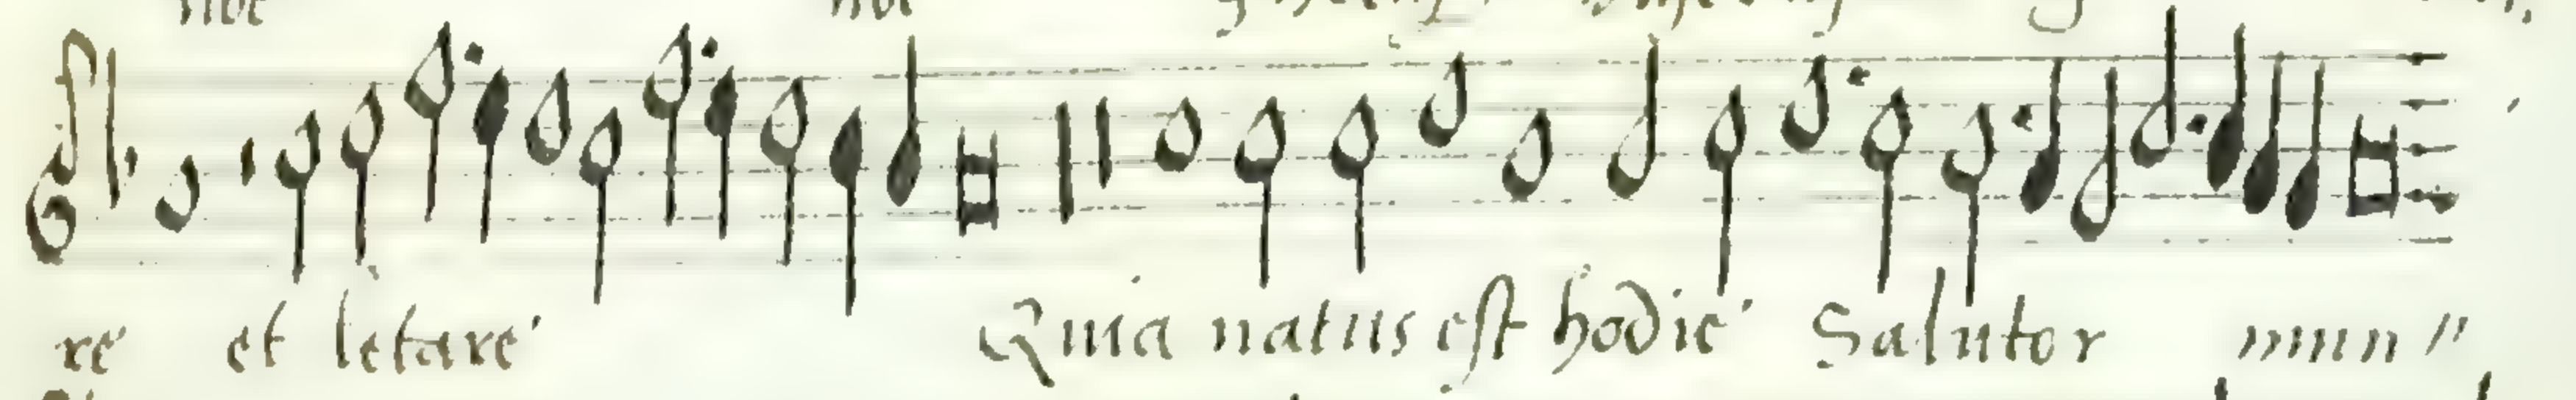 re et letare Quia natus est hodie Salutor mun〃